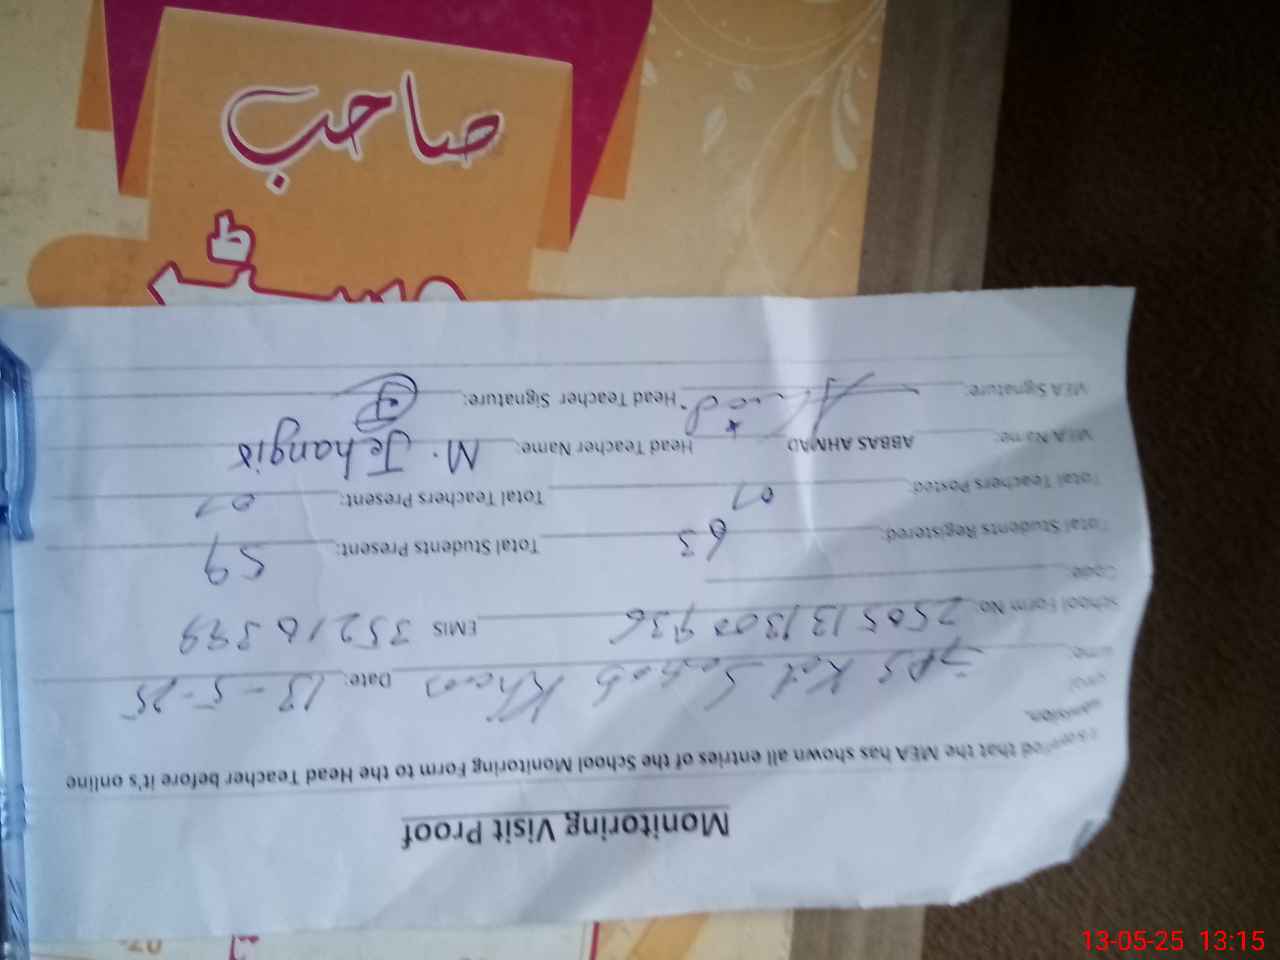 صاحب
Monitoring Visit Proof
that the MEA has shown all entries of the School Monitoring Form to the Head Teacher before it's online
GPS Kot Sohab Khan Date: 13-5-25
School Form No: EMIS 35210399
Code:
Total Students Registered: 63 Total Students Present: 59
Total Teachers Posted: 07 Total Teachers Present: 07
MEA Name: ABBAS AHMAD Head Teacher Name: M. Jehangir
MEA Signature: Head Teacher Signature:
13-05-25 13:15